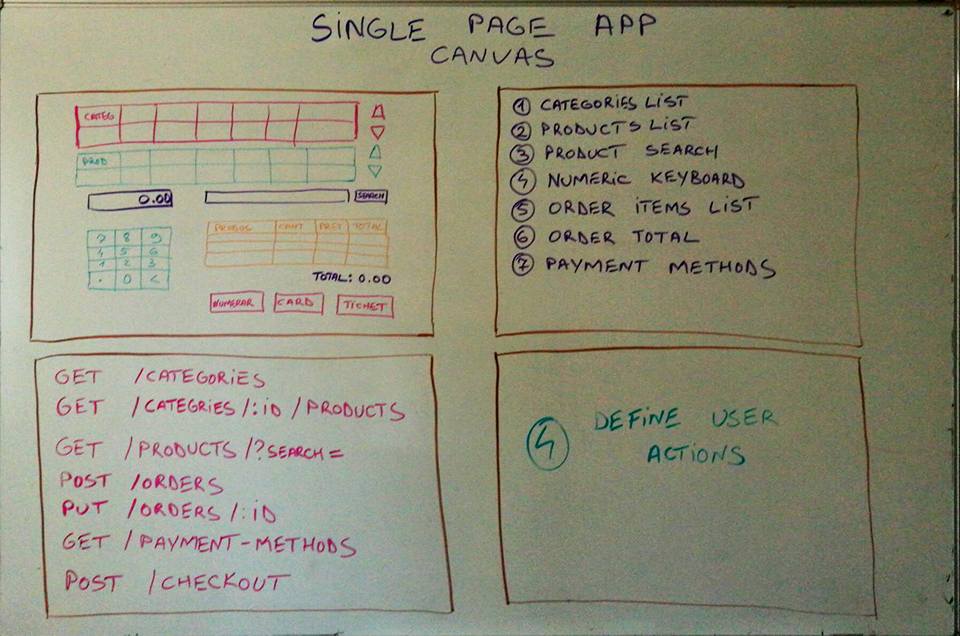 SINGLE PAGE APP
CANVAS
CATEG
PROD
0.00
SEARCH
7 8 9
4 5 6
1 2 3
. 0 <
PRODUS CANT PRET TOTAL
TOTAL: 0.00
NUMERAR CARD TICHET
① CATEGORIES LIST
② PRODUCTS LIST
③ PRODUCT SEARCH
④ NUMERIC KEYBOARD
⑤ ORDER ITEMS LIST
⑥ ORDER TOTAL
⑦ PAYMENT METHODS
GET /CATEGORIES
GET /CATEGRIES/:ID/PRODUCTS
GET /PRODUCTS/?SEARCH=
POST /ORDERS
PUT /ORDERS/:ID
GET /PAYMENT-METHODS
POST /CHECKOUT
④ DEFINE USER
ACTIONS